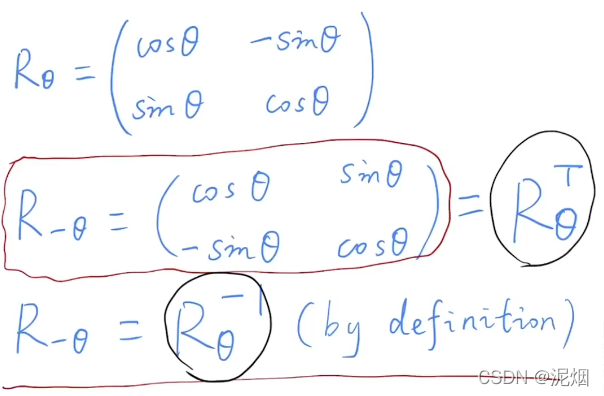 R_θ = ( cosθ  -sinθ
sinθ  cosθ )
R_{-θ} = ( cosθ  sinθ
-sinθ  cosθ ) = R_θ^T
R_{-θ} = R_θ^{-1} (by definition)
CSDN @泥烟